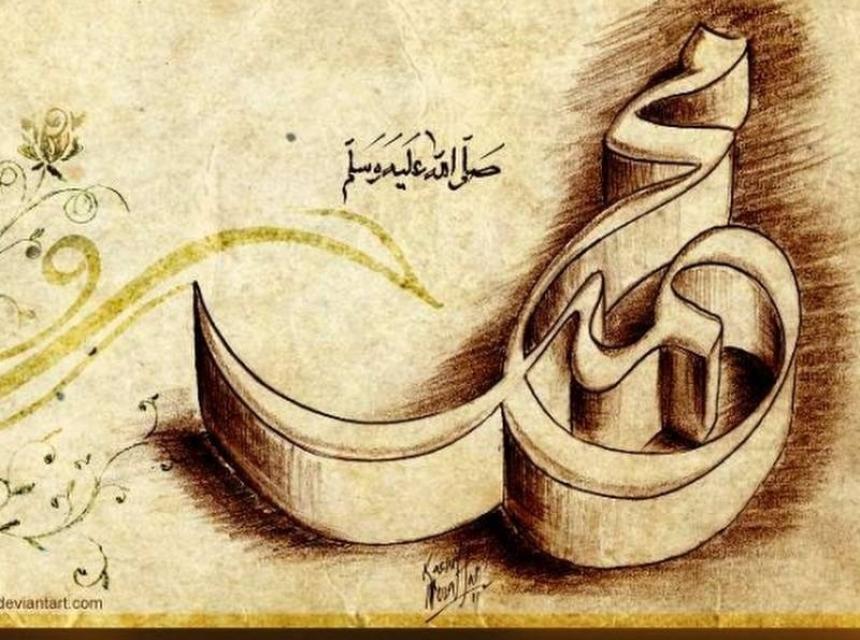 صَلَّى اللّٰه عَلَيْه وَسَلَّم
محمد
deviantart.com